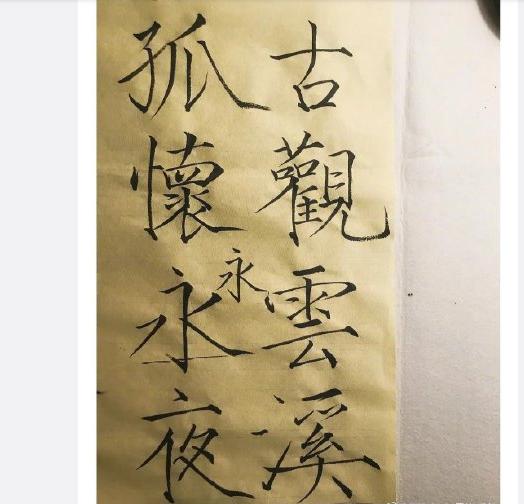 古觀雲溪
孤懷永夜
永